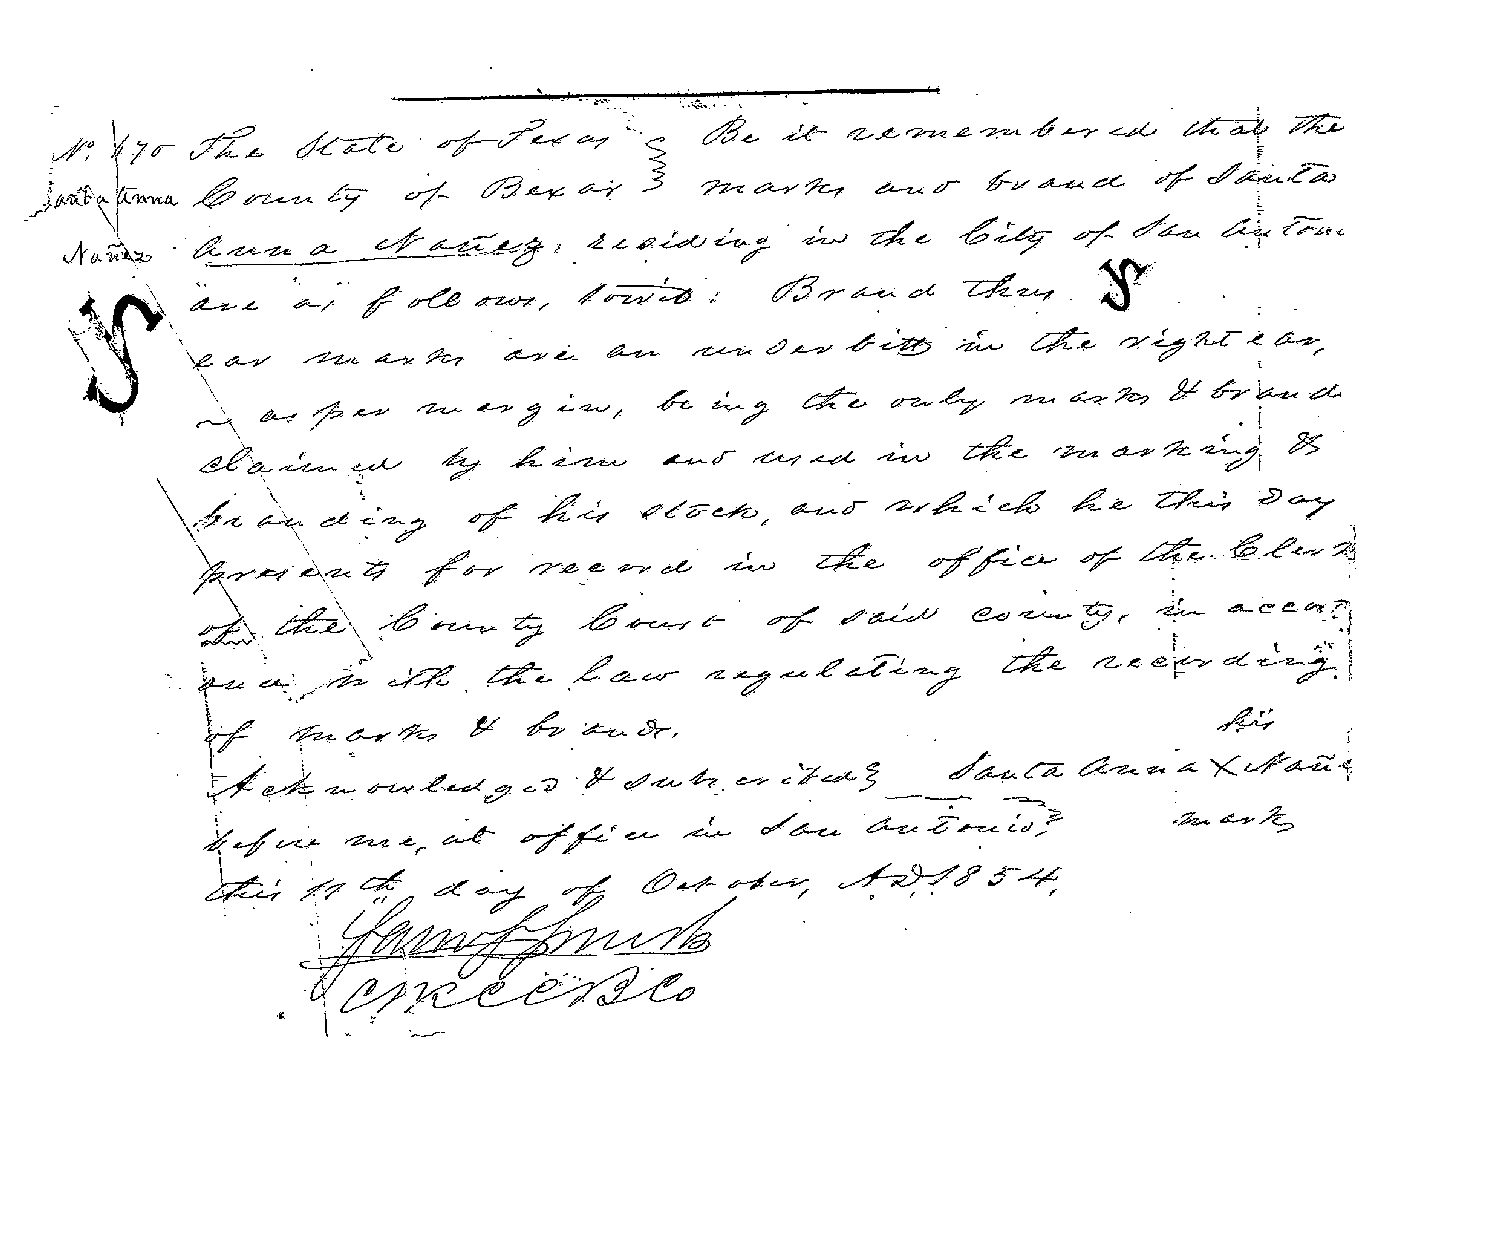 No. 670 The State of Texas } Be it remembered that the
Santa Anna County of Bexar } marks and brand of Santa
Nañez Anna Nañez, residing in the City of San Antoni
are as follows, towit: Brand thus
ear marks are an underbitt in the right ear,
as per margin, being the only marks & brand
claimed by him and used in the marking &
branding of his stock, and which he this day
presents for record in the office of the Clerk
of the County Court of said county, in accor
ance with the law regulating the recording
of marks & brands.
his
Acknowledged & subscribed } Santa Anna X Nañe
before me, at office in San Antonio } mark
this 11th day of October, AD 1854.
CKCCBCo